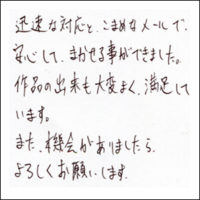 迅速な対応と、こまめなメールで、
安心して、まかせる事ができました。
作品の出来も大変よく、満足して
います。
また、機会がありましたら、
よろしくお願いします。